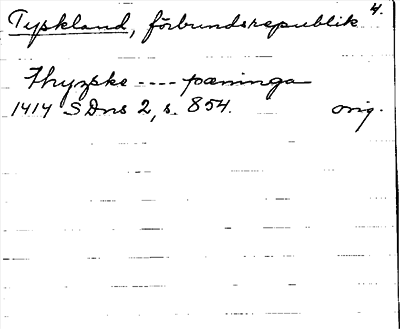 Tyskland, förbundsrepublik 4.
thyzske ---- pæninga
1414 SDns 2, s. 854. orig.